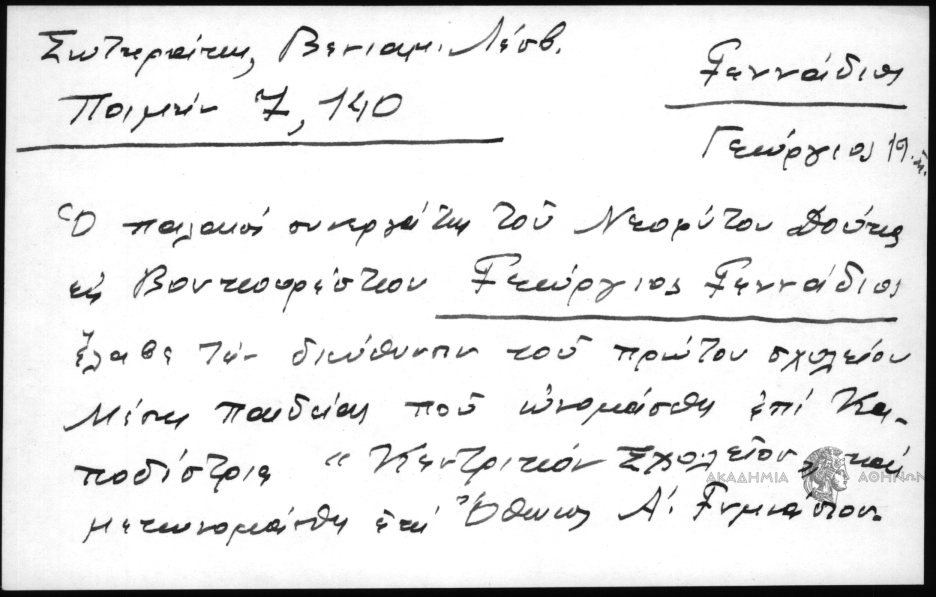 Σωτηράκη, Βενιαμ. Λέσβ.
Ποιμήν 7, 140
Γεννάδιος
Γεώργιος 19
Ὁ παλαιός συνεργάτης τοῦ Νεοφύτου Δούκα
εἰς Βουκουρέστιον Γεώργιος Γεννάδιος
ἔλαβε τήν διεύθυνσιν τοῦ πρώτου σχολείου
Μέσης παιδείας πού ὠνομάσθη ἐπί Κα-
ποδίστρια "Κεντρικόν Σχολεῖον" καί
μετωνομάσθη ἐπί Ὄθωνος Α' Γυμνάσιον.
ΑΚΑΔΗΜΙΑ ΑΘΗΝΩΝ